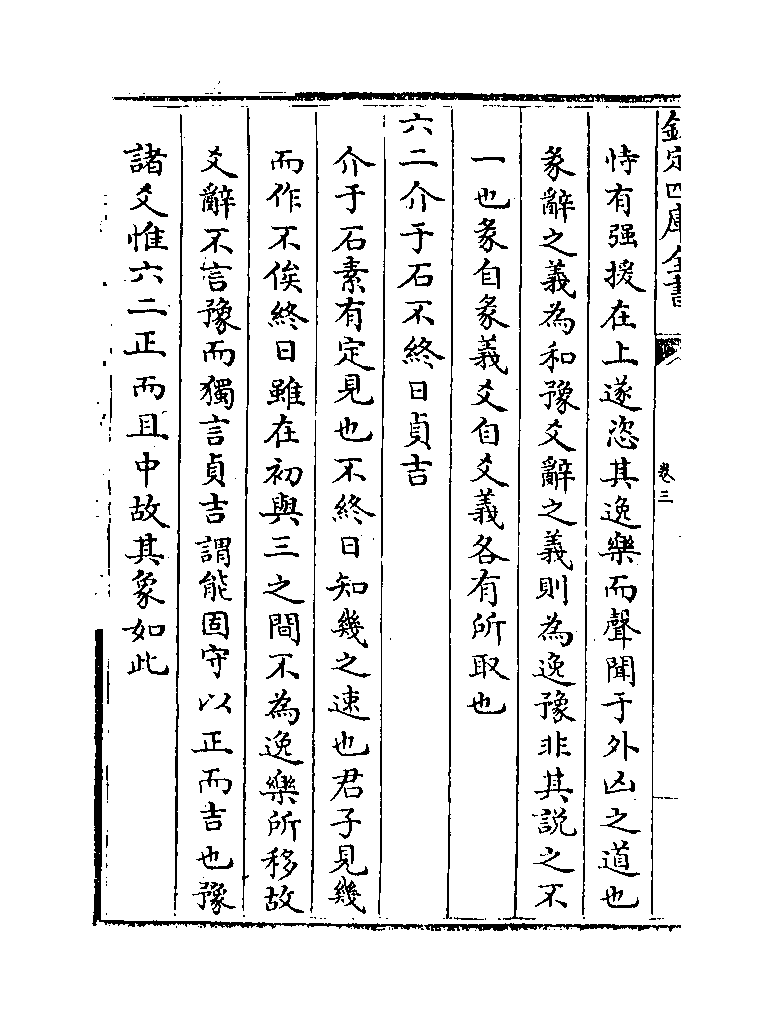 欽定四庫全書
卷三
恃有强援在上遂恣其逸樂而聲聞于外凶之道也
彖辭之義為和豫爻辭之義則為逸豫非其説之不
一也彖自彖義爻自爻義各有所取也
六二介于石不終日貞吉
介于石素有定見也不終日知幾之速也君子見幾
而作不俟終日雖在初與三之間不為逸樂所移故
爻辭不言豫而獨言貞吉謂能固守以正而吉也豫
諸爻惟六二正而且中故其象如此